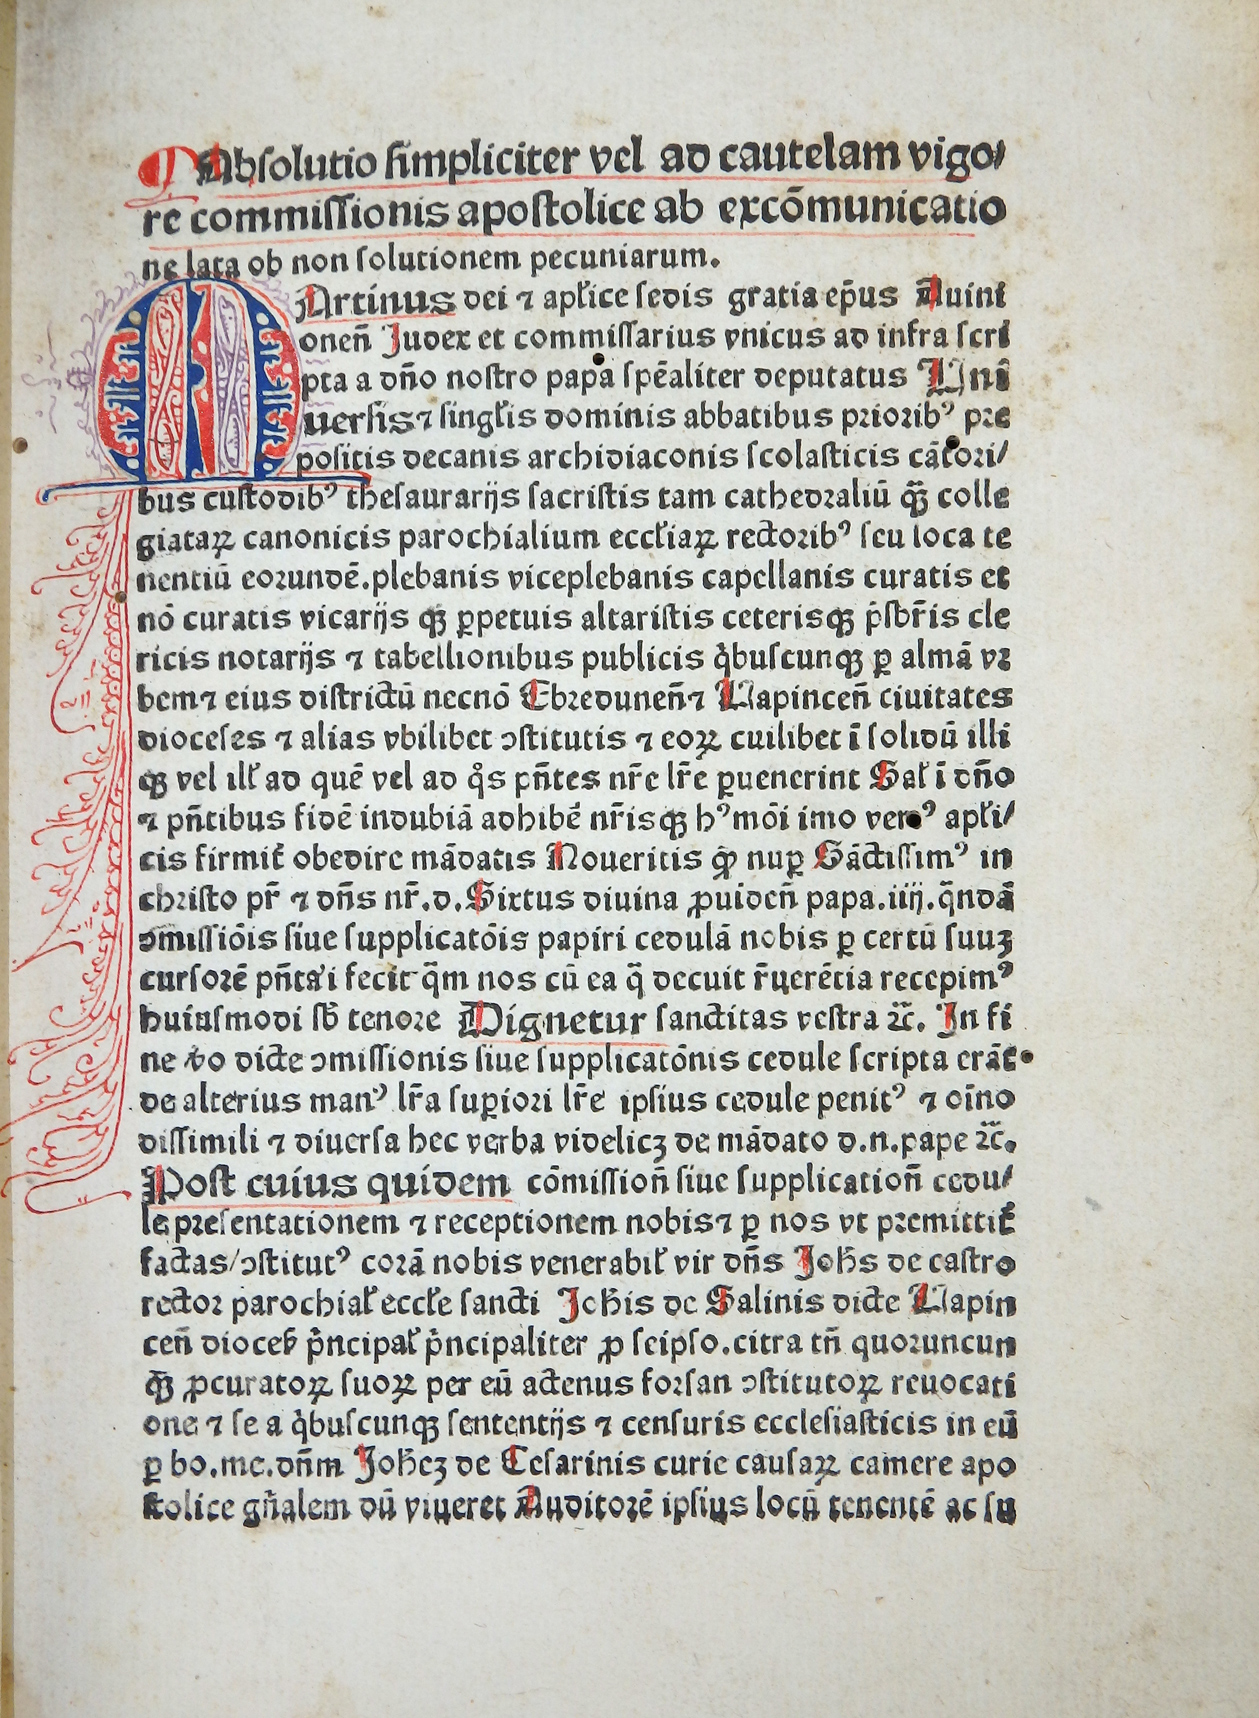 Absolutio simpliciter vel ad cautelam vigo/
re commissionis apostolice ab excōmunicatio
ne lata ob non solutionem pecuniarum.
MArtinus dei ⁊ apl̄ice sedis gratia ep̄us Auini
onen̄ Judex et commissarius vnicus ad infra scri
pta a dn̄o nostro papa sp̄ealiter deputatus Uni
uersis ⁊ singl̄is dominis abbatibus priorib⁹ pre
positis decanis archidiaconis scolasticis cātori/
bus custodib⁹ thesaurarijs sacristis tam cathedraliū qꝫ̄ colle
giataꝝ canonicis parochialium eccl̄iaꝝ rectorib⁹ seu loca te
nentiū eorundē.plebanis viceplebanis capellanis curatis et
nō curatis vicarijs qꝫ ꝑpetuis altaristis ceterisqꝫ p̄sbr̄is cle
ricis notarijs ⁊ tabellionibus publicis qͥbuscunqꝫ ꝑ almā vr
bem ⁊ eius districtū necnō Ebredunen̄ ⁊ Uapincen̄ ciuitates
dioceses ⁊ alias vbilibet ꝯstitutis ⁊ eoꝝ cuilibet ī solidū illi
qꝫ vel ill̄ ad quē vel ad qͦs pn̄tes nr̄e lr̄e ꝑuenerint Sal̄ ī dn̄o
⁊ pn̄tibus fidē indubiā adhibē nr̄isqꝫ h⁹mōi imo ver⁹ apl̄i/
cis firmit̄ obedire mādatis Noueritis ꝙ nuꝑ Sāctissim⁹ in
christo pr̄ ⁊ dn̄s nr̄.d.Sixtus diuina ꝓuiden̄ papa.iiij.qͣndā
ꝯmissiōis siue supplicatōis papiri cedulā nobis ꝑ certū suuꝫ
cursorē pn̄tari fecit qͣm nos cū ea qͣ decuit r̄uerētia recepim⁹
huiusmodi sb̄ tenore Dignetur sanctitas vestra ⁊c̄. In fi
ne v̄o dicte ꝯmissionis siue supplicatōnis cedule scripta erāt
de alterius man⁹ lr̄a suꝑiori lr̄e ipsius cedule penit⁹ ⁊ oīno
dissimili ⁊ diuersa hec verba videlicꝫ de mādato d.n.pape ⁊c̄.
Post cuius quidem cōmission̄ siue supplication̄ cedu/
le presentationem ⁊ receptionem nobis ⁊ ꝑ nos vt premittit̄
factas/ꝯstitut⁹ corā nobis venerabil̄ vir dn̄s Joh̄s de castro
rector parochial̄ eccl̄e sancti Joh̄is de Salinis dicte Uapin
cen̄ dioces̄ pͥncipal̄ pͥncipaliter ꝓ seipso.citra tn̄ quoruncun
qꝫ̄ ꝓcuratoꝝ suoꝝ per eū actenus forsan ꝯstitutoꝝ reuocati
one ⁊ se a qͥbuscunqꝫ sententijs ⁊ censuris ecclesiasticis in eū
ꝑ bo.me.dn̄m Joh̄eꝫ de Cesarinis curie causaꝝ camere apo
stolice gn̄alem dū viueret Auditorē ipsius locū tenentē ac su